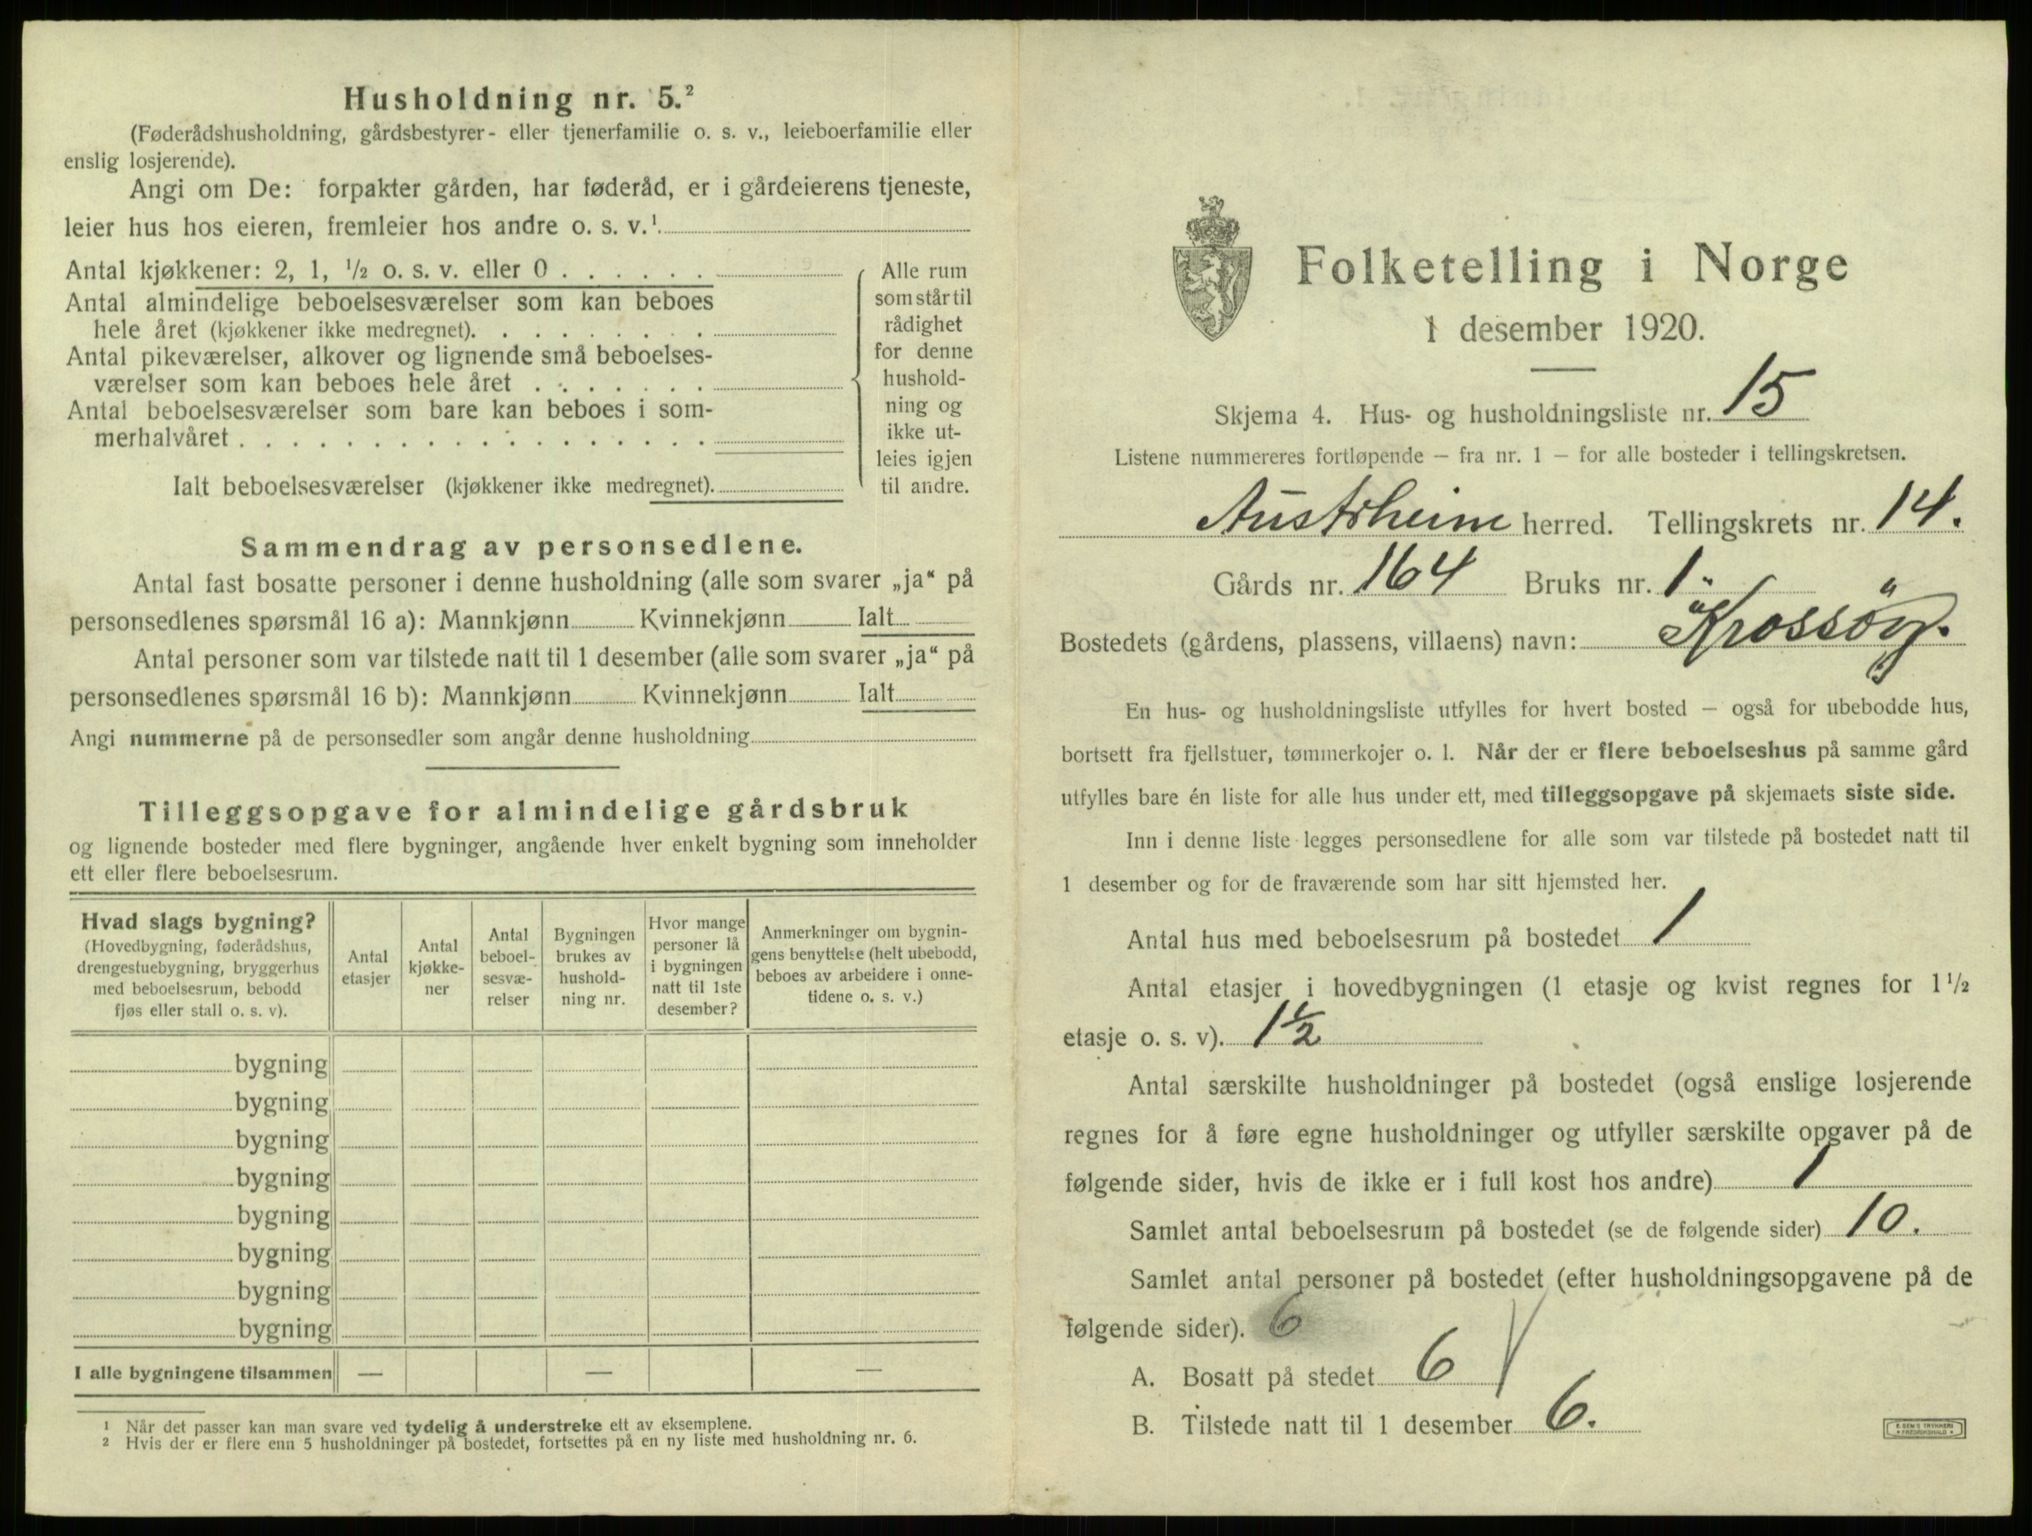 Husholdning nr. 5.²
(Føderådshusholdning, gårdsbestyrer- eller tjenerfamilie o. s. v., leieboerfamilie eller
enslig losjerende).
Angi om De: forpakter gården, har føderåd, er i gårdeierens tjeneste,
leier hus hos eieren, fremleier hos andre o. s. v.¹
Antal kjøkkener: 2, 1, ½ o. s. v. eller 0 . . . . . .
Antal almindelige beboelsesværelser som kan beboes
hele året (kjøkkener ikke medregnet). . . . . . . . .
Antal pikeværelser, alkover og lignende små beboelses-
værelser som kan beboes hele året . . . . . . .
Antal beboelsesværelser som bare kan beboes i som-
merhalvåret . . . . . . . . . . . . . . . . . .
Ialt beboelsesværelser (kjøkkener ikke medregnet).
Alle rum
som står til
rådighet
for denne
hushold-
ning og
ikke ut-
leies igjen
til andre.
Sammendrag av personsedlene.
Antal fast bosatte personer i denne husholdning (alle som svarer „ja“ på
personsedlenes spørsmål 16 a): Mannkjønn Kvinnekjønn Ialt
Antal personer som var tilstede natt til 1 desember (alle som svarer „ja“ på
personsedlenes spørsmål 16 b): Mannkjønn Kvinnekjønn Ialt
Angi nummerne på de personsedler som angår denne husholdning
Tilleggsopgave for almindelige gårdsbruk
og lignende bosteder med flere bygninger, angående hver enkelt bygning som inneholder
ett eller flere beboelsesrum.
Hvad slags bygning?
(Hovedbygning, føderådshus,
drengestuebygning, bryggerhus
med beboelsesrum, bebodd
fjøs eller stall o. s. v).
Antal
etasjer
Antal
kjøkke-
ner
Antal
beboel-
sesvæ-
relser
Bygningen
brukes av
hushold-
ning nr.
Hvor mange
personer lå
i bygningen
natt til 1ste
desember?
Anmerkninger om bygnin-
gens benyttelse (helt ubebodd,
beboes av arbeidere i onne-
tidene o. s. v.)
bygning
bygning
bygning
bygning
bygning
bygning
bygning
bygning
I alle bygningene tilsammen — — —
¹ Når det passer kan man svare ved tydelig å understreke ett av eksemplene.
² Hvis der er flere enn 5 husholdninger på bostedet, fortsettes på en ny liste med husholdning nr. 6.
Folketelling i Norge
1 desember 1920.
Skjema 4. Hus- og husholdningsliste nr. 15
Listene nummereres fortløpende – fra nr. 1 – for alle bosteder i tellingskretsen.
Austrheim herred. Tellingskrets nr. 14.
Gårds nr. 164 Bruks nr. 1
Bostedets (gårdens, plassens, villaens) navn: Krossöy.
En hus- og husholdningsliste utfylles for hvert bosted – også for ubebodde hus,
bortsett fra fjellstuer, tømmerkojer o. l. Når der er flere beboelseshus på samme gård
utfylles bare én liste for alle hus under ett, med tilleggsopgave på skjemaets siste side.
Inn i denne liste legges personsedlene for alle som var tilstede på bostedet natt til
1 desember og for de fraværende som har sitt hjemsted her.
Antal hus med beboelsesrum på bostedet 1
Antal etasjer i hovedbygningen (1 etasje og kvist regnes for 1½
etasje o. s. v). 1½
Antal særskilte husholdninger på bostedet (også enslige losjerende
regnes for å føre egne husholdninger og utfyller særskilte opgaver på de
følgende sider, hvis de ikke er i full kost hos andre) 1
Samlet antal beboelsesrum på bostedet (se de følgende sider) 10.
Samlet antal personer på bostedet (efter husholdningsopgavene på de
følgende sider). 6
A. Bosatt på stedet 6
B. Tilstede natt til 1 desember 6.
E. SEM'S TRYKKERI
FREDRIKSHALD